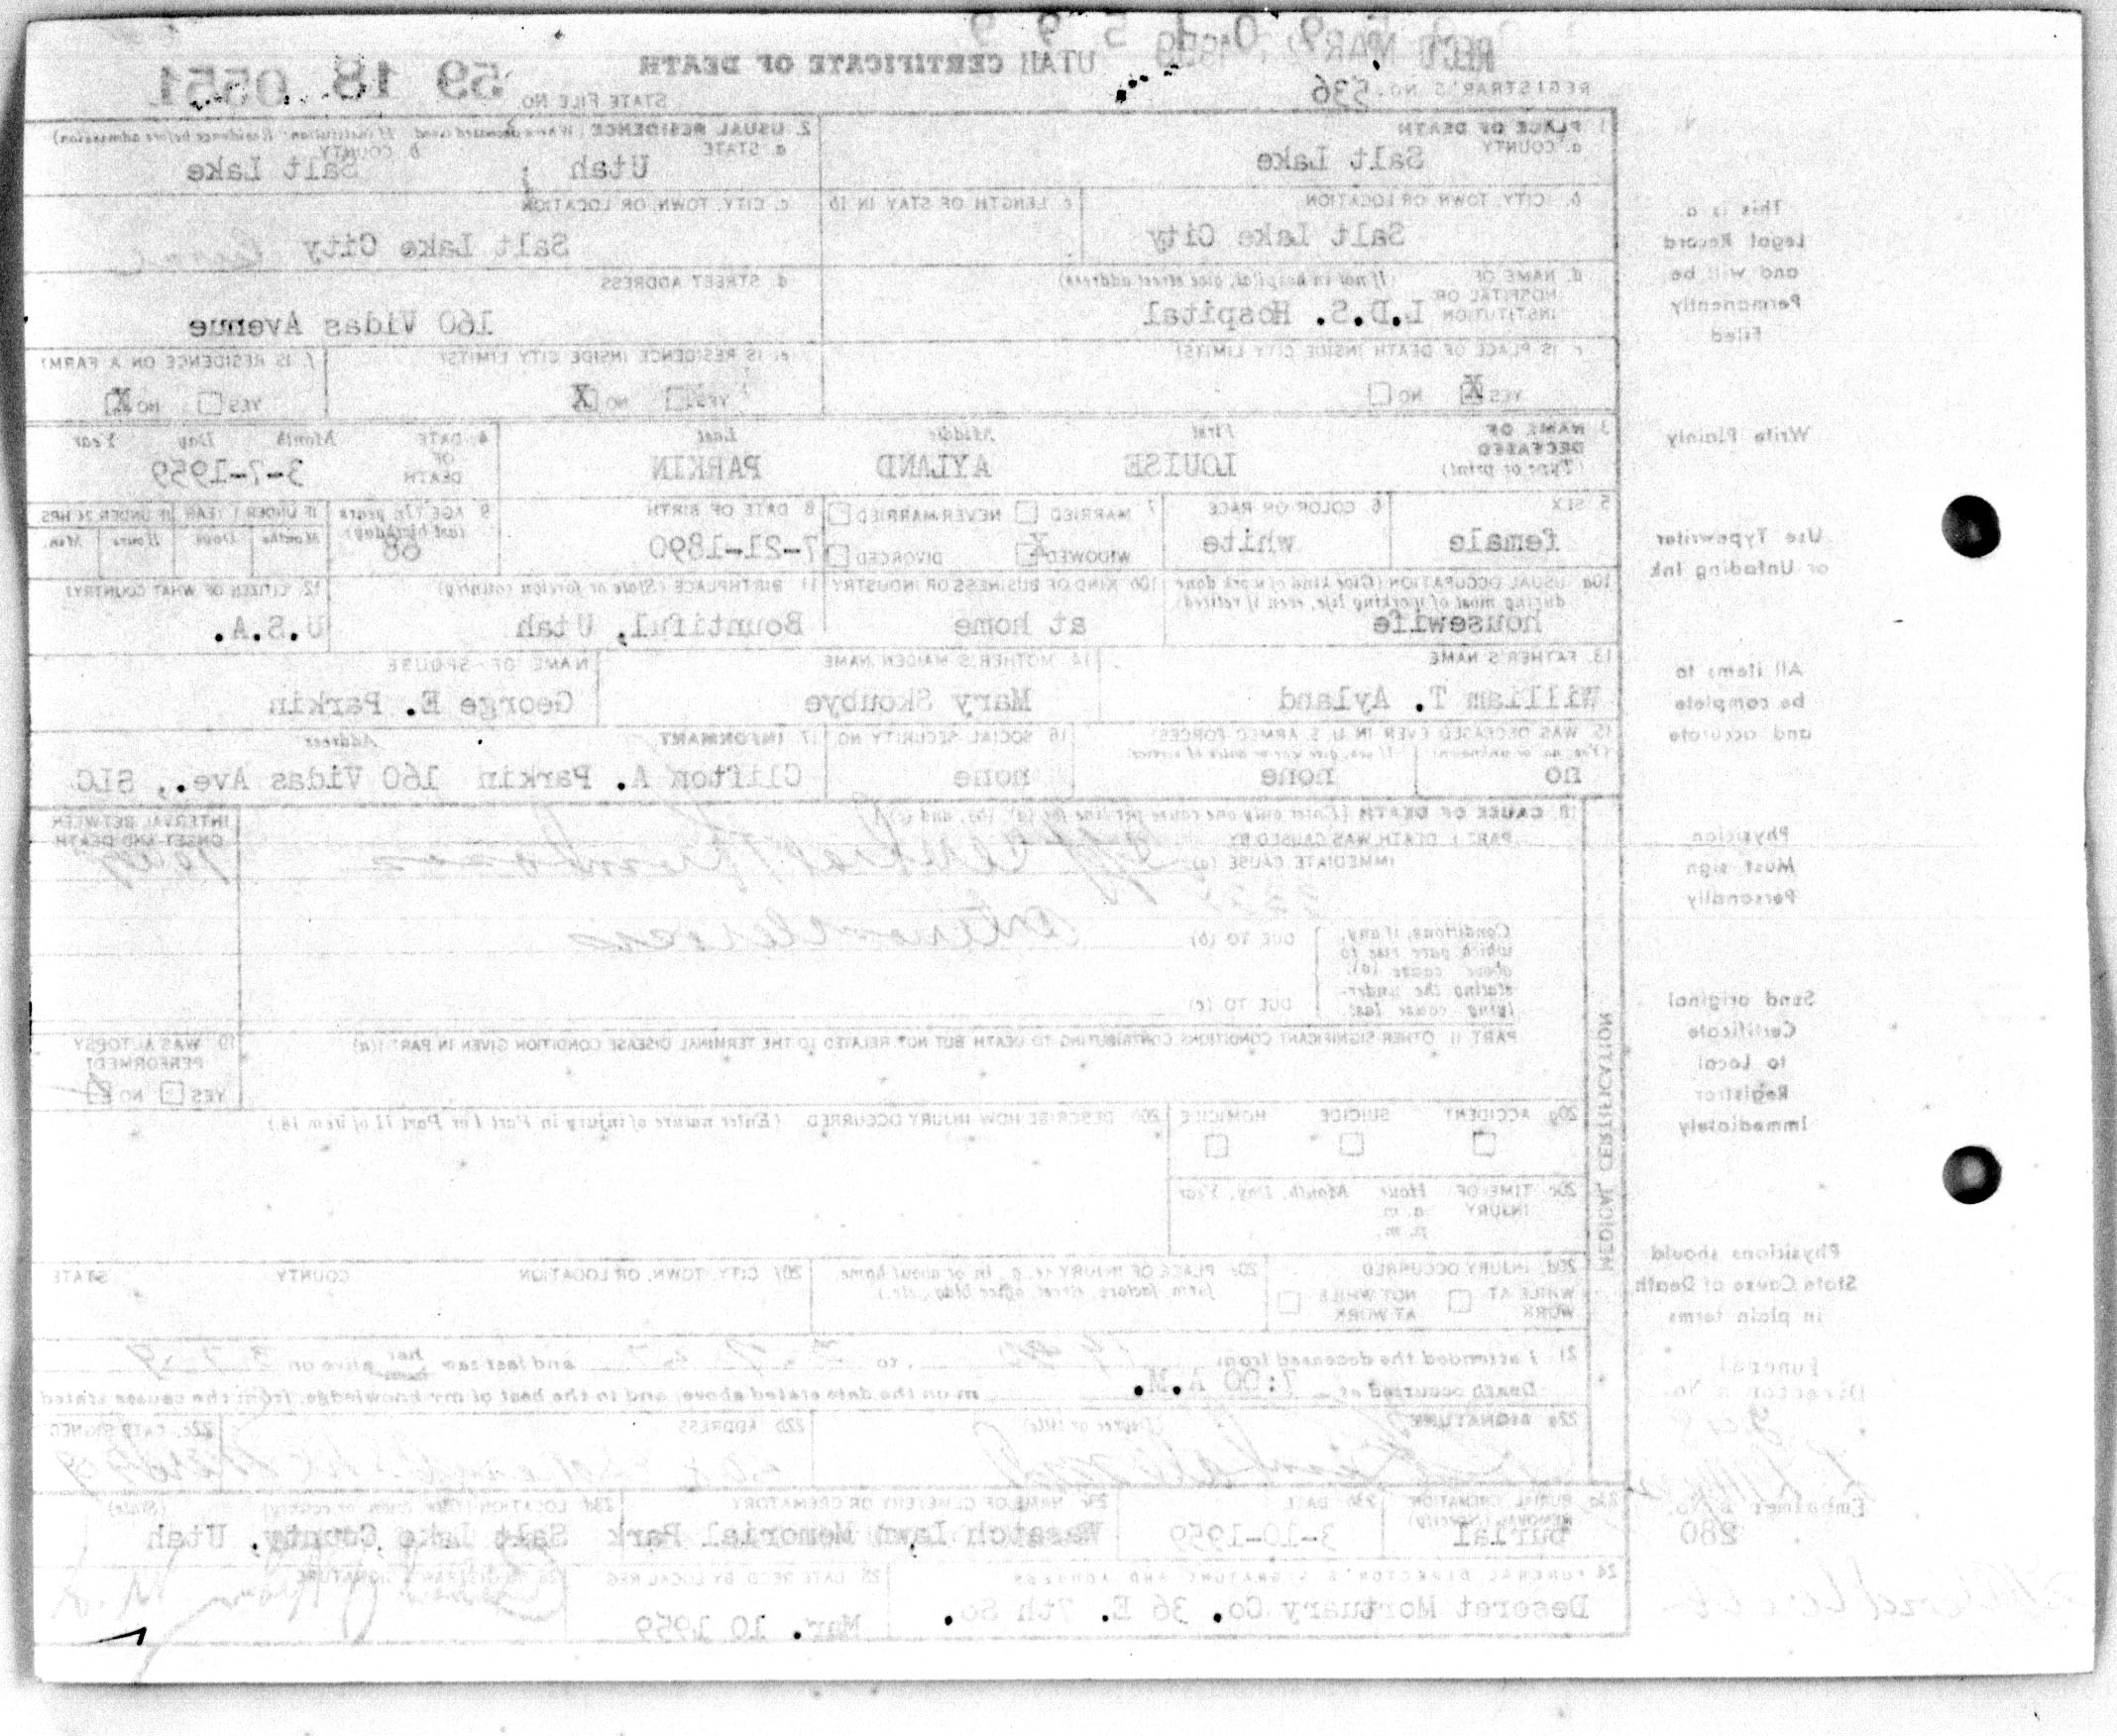 REC'D MAR
REGISTRAR'S NO. 536
UTAH CERTIFICATE OF DEATH
STATE FILE NO. 59 18 0551
1. PLACE OF DEATH
a. COUNTY
Salt Lake
2. USUAL RESIDENCE (Where deceased lived. If institution: Residence before admission)
a. STATE
Utah
b. COUNTY
Salt Lake
b. CITY, TOWN OR LOCATION
Salt Lake City
c. LENGTH OF STAY IN 1b
c. CITY, TOWN, OR LOCATION
Salt Lake City
d. NAME OF HOSPITAL OR INSTITUTION (If not in hospital, give street address)
L.D.S. Hospital
d. STREET ADDRESS
160 Vidas Avenue
e. IS PLACE OF DEATH INSIDE CITY LIMITS?
YES X NO
e. IS RESIDENCE INSIDE CITY LIMITS?
YES NO X
f. IS RESIDENCE ON A FARM?
YES NO X
3. NAME OF DECEASED (Type or print)
First Middle Last
LOUISE AYLAND PARKIN
4. DATE OF DEATH Month Day Year
3-7-1959
5. SEX
female
6. COLOR OR RACE
white
7. MARRIED NEVER MARRIED
WIDOWED X DIVORCED
8. DATE OF BIRTH
7-21-1890
9. AGE (In years last birthday)
68
IF UNDER 1 YEAR IF UNDER 24 HRS
Months Days Hours Min.
10a. USUAL OCCUPATION (Give kind of work done during most of working life, even if retired)
housewife
10b. KIND OF BUSINESS OR INDUSTRY
at home
11. BIRTHPLACE (State or foreign country)
Bountiful, Utah
12. CITIZEN OF WHAT COUNTRY?
U.S.A.
13. FATHER'S NAME
William T. Ayland
14. MOTHER'S MAIDEN NAME
Mary Skoubye
NAME OF SPOUSE
George E. Parkin
15. WAS DECEASED EVER IN U. S. ARMED FORCES?
(Yes, no or unknown) (If yes, give war or dates of service)
no none
16. SOCIAL SECURITY NO.
none
17. INFORMANT Address
Clifton A. Parkin 160 Vidas Ave., SLC
18. CAUSE OF DEATH (Enter only one cause per line for (a), (b), and (c))
PART I. DEATH WAS CAUSED BY
IMMEDIATE CAUSE (a)
INTERVAL BETWEEN ONSET AND DEATH
Conditions, if any, which gave rise to above cause (a), stating the under-lying cause last.
DUE TO (b)
DUE TO (c)
PART II. OTHER SIGNIFICANT CONDITIONS CONTRIBUTING TO DEATH BUT NOT RELATED TO THE TERMINAL DISEASE CONDITION GIVEN IN PART I(a)
19. WAS AUTOPSY PERFORMED?
YES NO
MEDICAL CERTIFICATION
20a. ACCIDENT SUICIDE HOMICIDE
20b. DESCRIBE HOW INJURY OCCURRED (Enter nature of injury in Part I or Part II of item 18.)
20c. TIME OF INJURY Hour Month, Day, Year
a. m.
p. m.
20d. INJURY OCCURRED
WHILE AT WORK NOT WHILE AT WORK
20e. PLACE OF INJURY (e. g., in or about home, farm, factory, street, office bldg., etc.)
20f. CITY, TOWN, OR LOCATION COUNTY STATE
21. I attended the deceased from , to and last saw her him alive on
Death occurred at 7:00 A.M. m on the date stated above, and to the best of my knowledge, from the causes stated
22a. SIGNATURE (Degree or title)
22b. ADDRESS
22c. DATE SIGNED
23a. BURIAL, CREMATION, REMOVAL (Specify)
burial
23b. DATE
3-10-1959
23c. NAME OF CEMETERY OR CREMATORY
Wasatch Lawn Memorial Park
23d. LOCATION (City, town, or county) (State)
Salt Lake County, Utah
24. FUNERAL DIRECTOR'S SIGNATURE AND ADDRESS
Deseret Mortuary Co. 36 E. 7th So.
25. DATE REC'D BY LOCAL REG.
Mar. 10 1959
26. REGISTRAR'S SIGNATURE
This is a
Legal Record
and will be
Permanently
Filed
Write Plainly
Use Typewriter
or Unfading Ink
All items to
be complete
and accurate
Physician
Must sign
Personally
Send original
Certificate
to Local
Registrar
Immediately
Physicians should
State Cause of Death
in plain terms
Funeral
Director's No.
Embalmer's No.
280